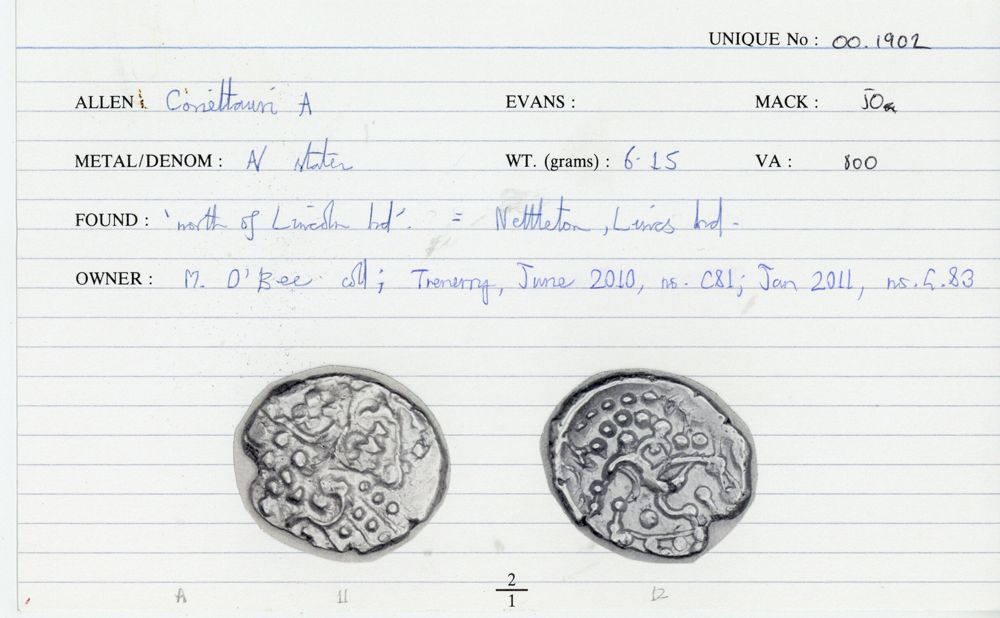 UNIQUE No : 00.1902
ALLEN : Corieltauvi A EVANS : MACK : 50a
METAL/DENOM : AV stater WT. (grams) : 6.15 VA : 800
FOUND : 'north of Lincoln bd'. = Nettleton, Lincs bd.
OWNER : M. O'Bee coll; Trenerry, June 2010, no. C81; Jan 2011, no. G.83
A 11 2/1 12